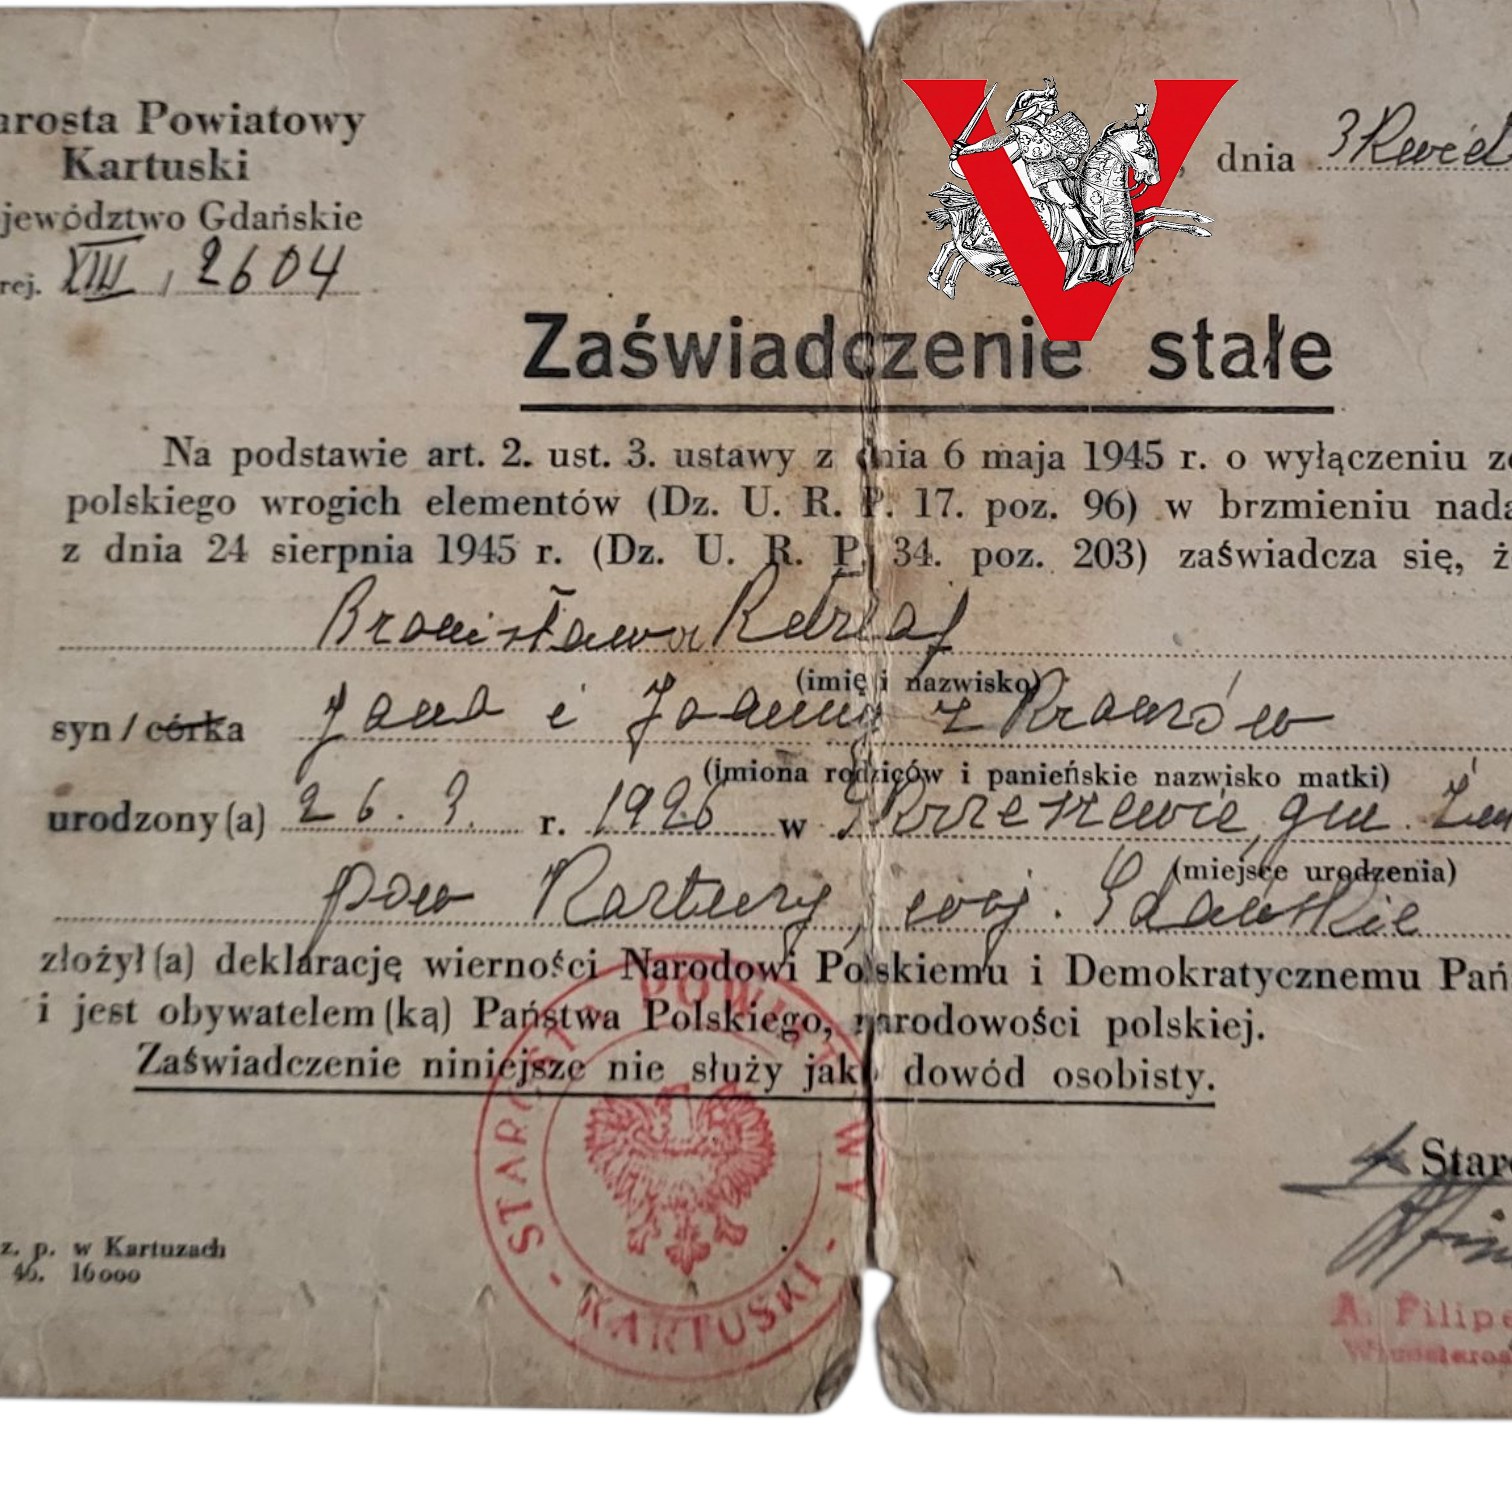 arosta Powiatowy
Kartuski
jewództwo Gdańskie
rej. XIII, 2604
V
, dnia 3 Kwiet
Zaświadczenie stałe
Na podstawie art. 2. ust. 3. ustawy z dnia 6 maja 1945 r. o wyłączeniu ze
polskiego wrogich elementów (Dz. U. R. P. 17. poz. 96) w brzmieniu nada
z dnia 24 sierpnia 1945 r. (Dz. U. R. P. 34. poz. 203) zaświadcza się, ż
Bronisława
(imię i nazwisko)
syn / córka Jana i Joanny z Kranzów
(imiona rodziców i panieńskie nazwisko matki)
urodzony (a) 26. 3. r. 1926 w gm.
(miejsce urodzenia)
pow Kartuzy, woj. Gdańskie
złożył (a) deklarację wierności Narodowi Polskiemu i Demokratycznemu Pań
i jest obywatelem (ką) Państwa Polskiego, narodowości polskiej.
Zaświadczenie niniejsze nie służy jako dowód osobisty.
STAROSTA POWIATOWY - KARTUSKI -
Staro
z. p. w Kartuzach
46. 16000
A. Filip